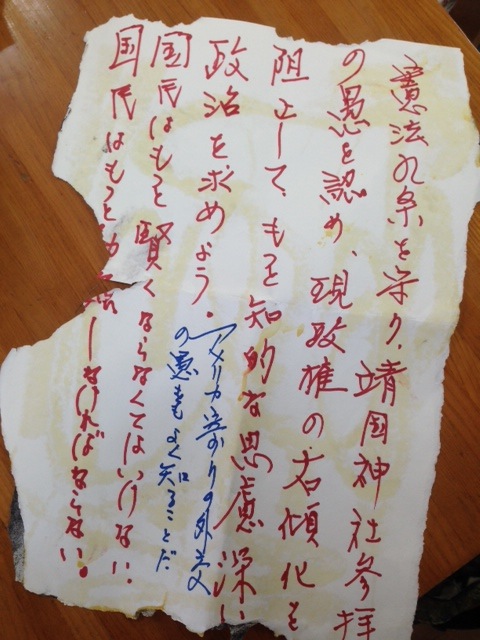 憲法九条を守り、靖国神社参拝
の愚を認め、現政権の右傾化を
阻止して、もっと知的な思慮深い
政治を求めよう。
アメリカ寄りの外交
の愚もよく知ることだ
国民はもっと賢くならなくてはいけない。
国民はもっと しなければならない。